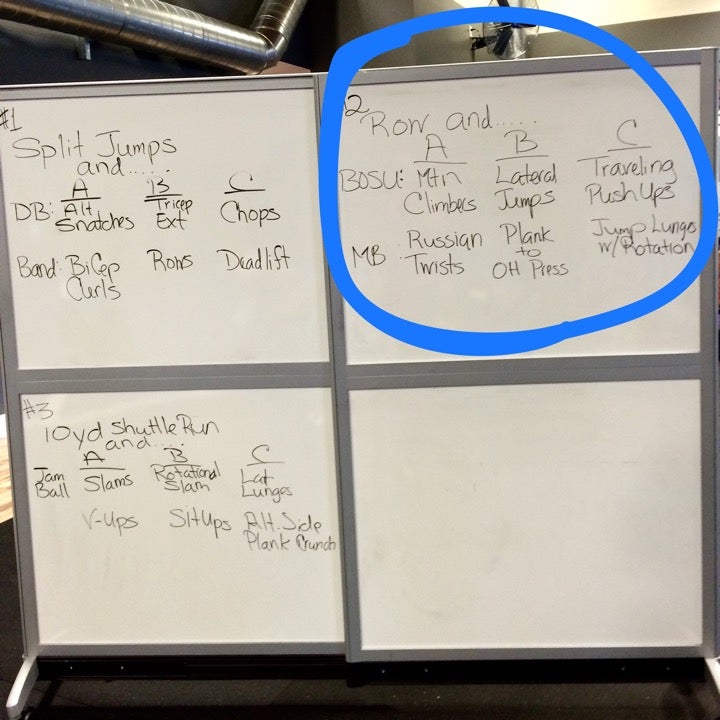 #1
Split Jumps
and.....
A B C
DB: Alt. Tricep Chops
Snatches Ext
Band: BiCep Rows Deadlift
Curls
#2
Row and.....
A B C
BOSU: Mtn Lateral Traveling
Climbers Jumps Push Ups
MB Russian Plank Jump Lunges
Twists to w/Rotation
OH Press
#3
10yd Shuttle Run
and....
A B C
Jam Slams Rotational Lat
Ball Slam Lunges
V-Ups SitUps Alt. Side
Plank Crunch